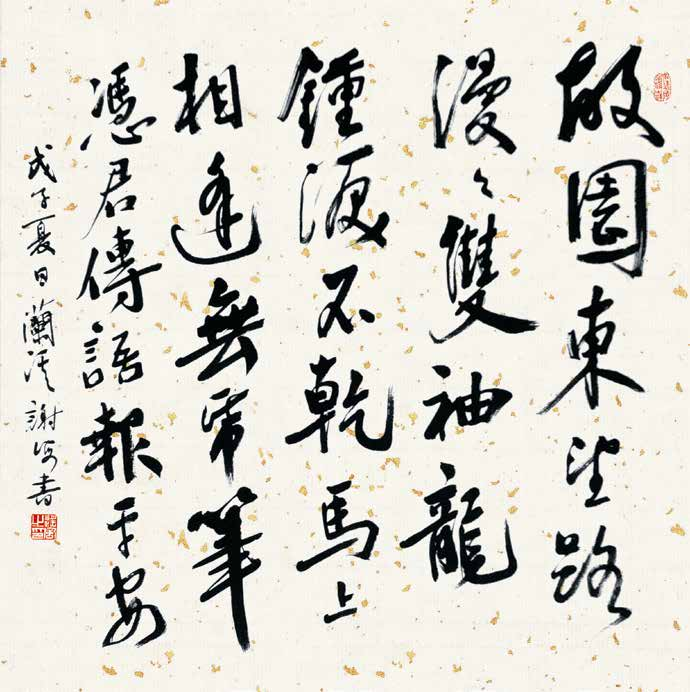 故園東望路
漫々雙袖龍
鍾淚不乾馬上
相逢無帋筆
憑君傳語報平安
戊子夏日蘭溪謝海書